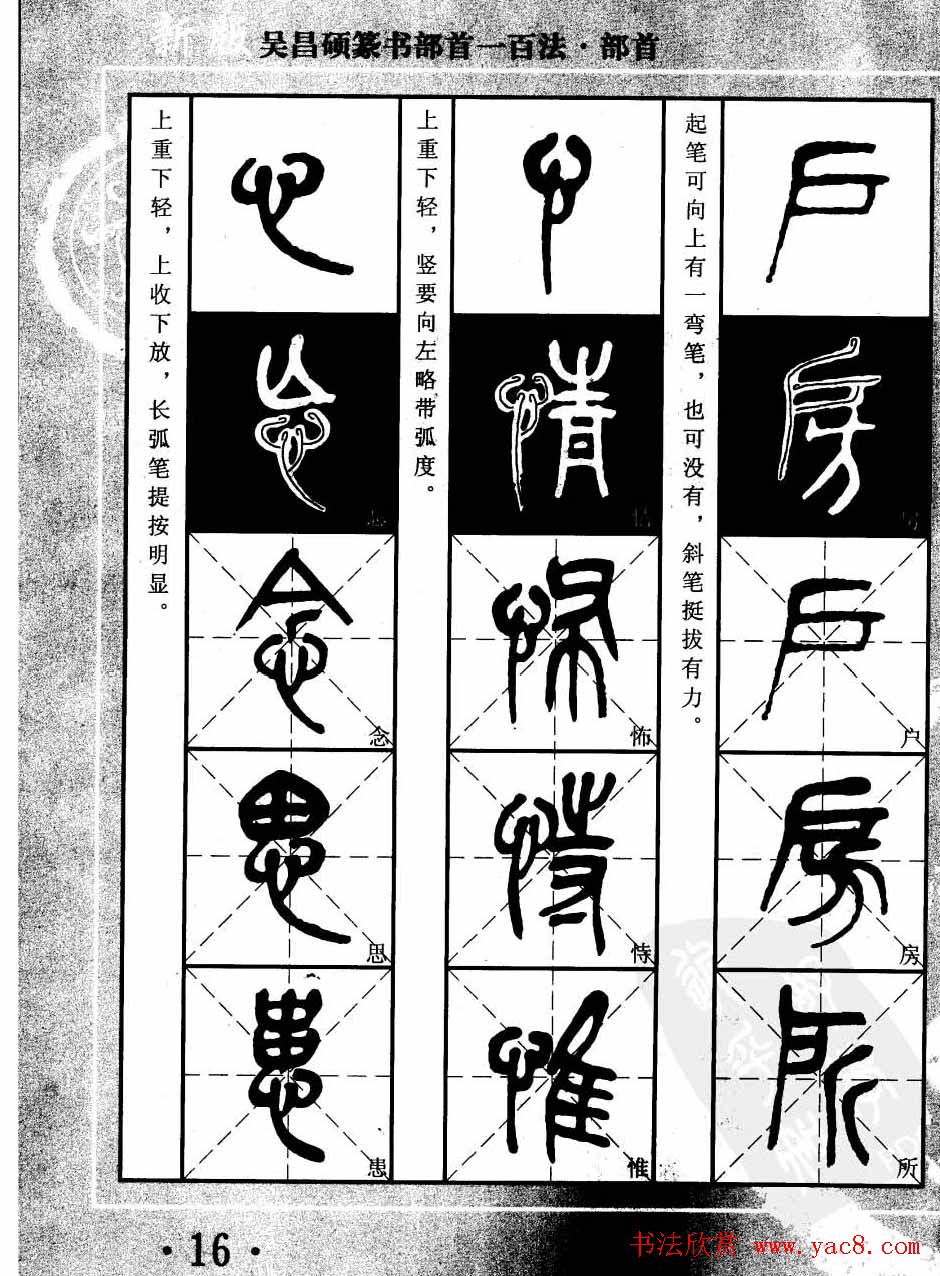 新版
吴昌硕篆书部首一百法·部首
起笔可向上有一弯笔，也可没有，斜笔挺拔有力。
户
房
所
上重下轻，竖要向左略带弧度。
情
怖
恃
惟
上重下轻，上收下放，长弧笔提按明显。
念
思
患
·16·
书法欣赏 www.yac8.com